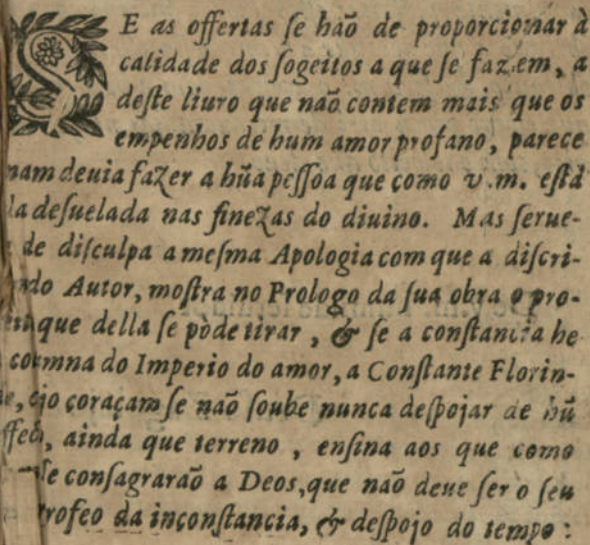 SE as offertas ſe haõ de proporcionar à
calidade dos ſogeitos a que ſe fazem, a
deſte liuro que naõ contem mais que os
empenhos de hum amor profano, parece
nam deuia faZer a hũa peſſoa que como v.m. eſtà
deſuelada nas fineZas do diuino. Mas ſerue-
de diſculpa a meſma Apologia com que a diſcri-
do Autor, moſtra no Prologo da ſua obra o pro-
que della ſe pòde tirar, & ſe a conſtancia he
coumna do Imperio do amor, a Conſtante Florin-
cujo coraçam ſe naõ ſoube nunca deſpojar de hũ
affecto, ainda que terreno, enſina aos que como
ſe conſagraraõ a Deos, que naõ deue ſer o ſeu
trofeo da inconſtancia, & deſpojo do tempo: